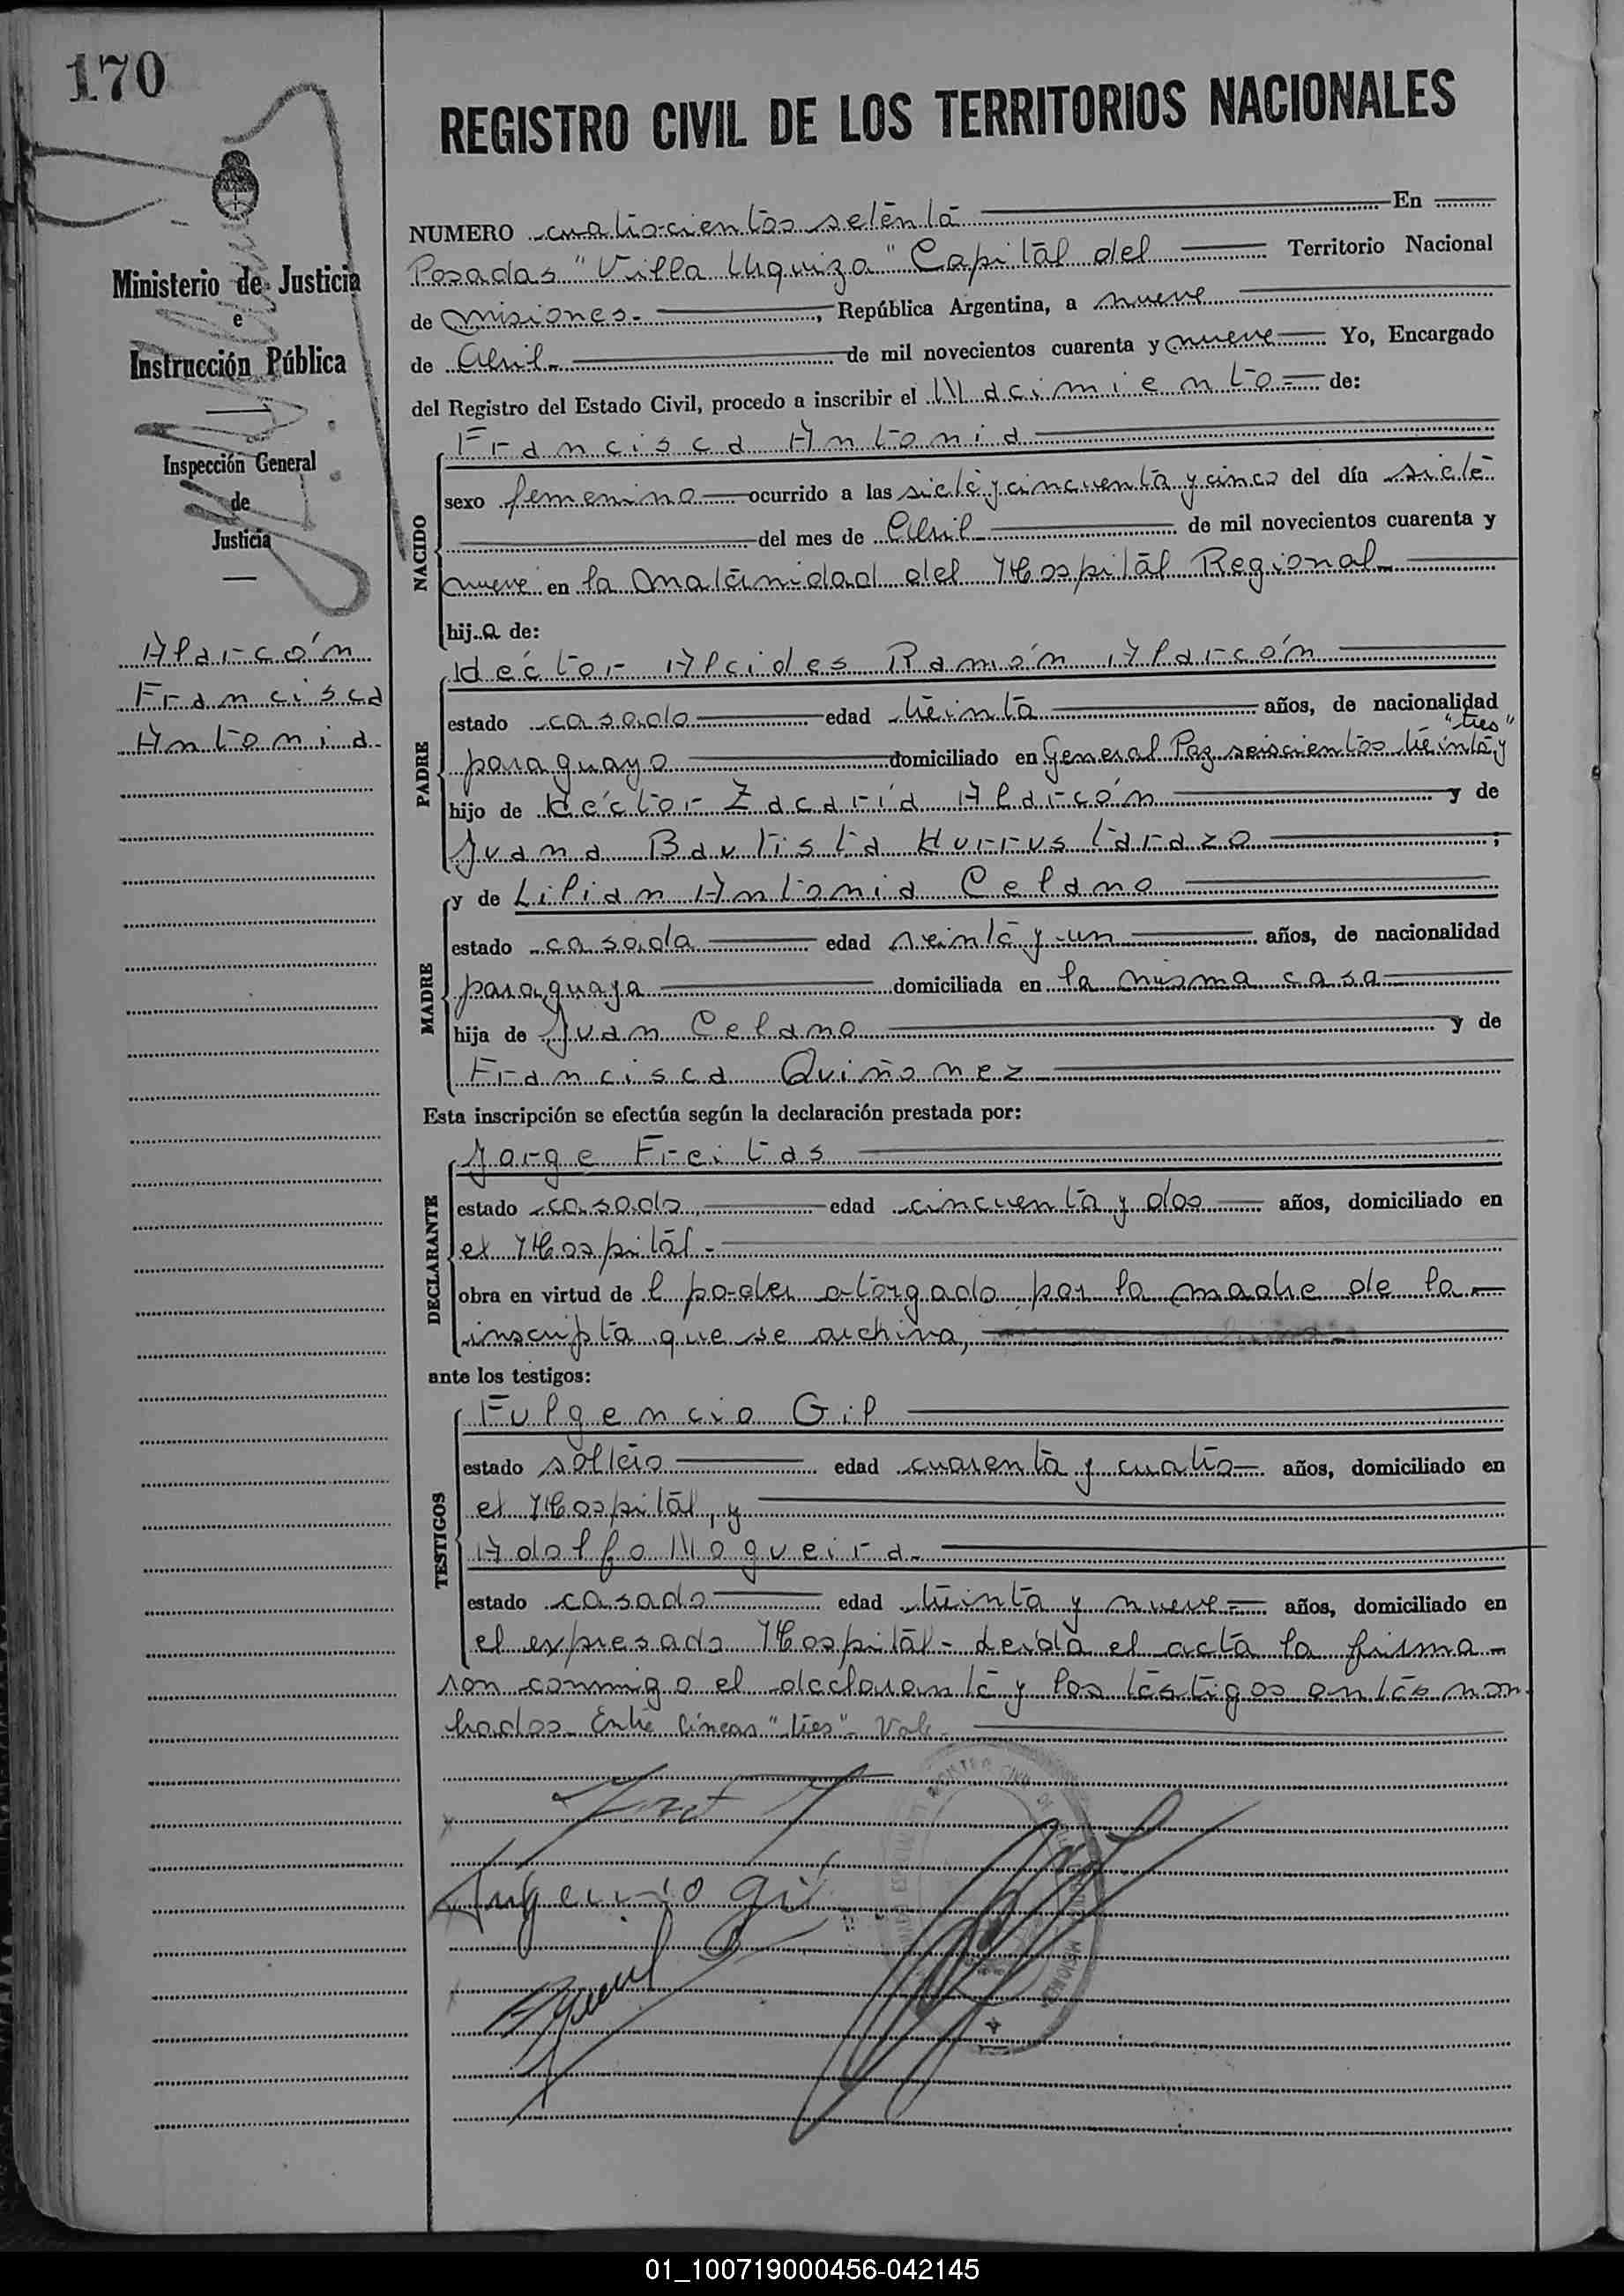 170
REGISTRO CIVIL DE LOS TERRITORIOS NACIONALES
Ministerio de Justicia
e
Instrucción Pública
Inspección General
de
Justicia
Alarcón
Francisca
Antonia.
NUMERO cuatrocientos setenta En
Posadas "Villa Urquiza" Capital del Territorio Nacional
de Misiones.- , República Argentina, a nueve
de Abril.- de mil novecientos cuarenta y nueve Yo, Encargado
del Registro del Estado Civil, procedo a inscribir el Nacimiento de:
NACIDO
Francisca Antonia
sexo femenino ocurrido a las siete y cincuenta y cinco del día siete
del mes de Abril de mil novecientos cuarenta y
nueve en la Maternidad del Hospital Regional
hija de:
PADRE
Héctor Alcides Ramón Alarcón
estado casado edad treinta años, de nacionalidad
"tres"
paraguayo domiciliado en General Paz seiscientos treinta y
hijo de Héctor Zacaría Alarcón y de
Juana Bautista Hurrustarazo ;
MADRE
y de Lilian Antonia Celano
estado casada edad veinte y un años, de nacionalidad
paraguaya domiciliada en la misma casa
hija de Juan Celano y de
Francisca Quiñonez
Esta inscripción se efectúa según la declaración prestada por:
DECLARANTE
Jorge Freitas
estado casado edad cincuenta y dos años, domiciliado en
el Hospital.-
obra en virtud de l poder otorgado por la madre de la
inscripta que se archiva,
ante los testigos:
TESTIGOS
Fulgencio Gil
estado soltero edad cuarenta y cuatro años, domiciliado en
el Hospital, y
Adolfo Nogueira.
estado casado edad treinta y nueve años, domiciliado en
el expresado Hospital- Leida el acta la firma-
ron conmigo el declarante y los testigos antes nom-
brados- Entre líneas "tres"- Vale-
Fulgencio Gil
MISIONES
01_100719000456-042145